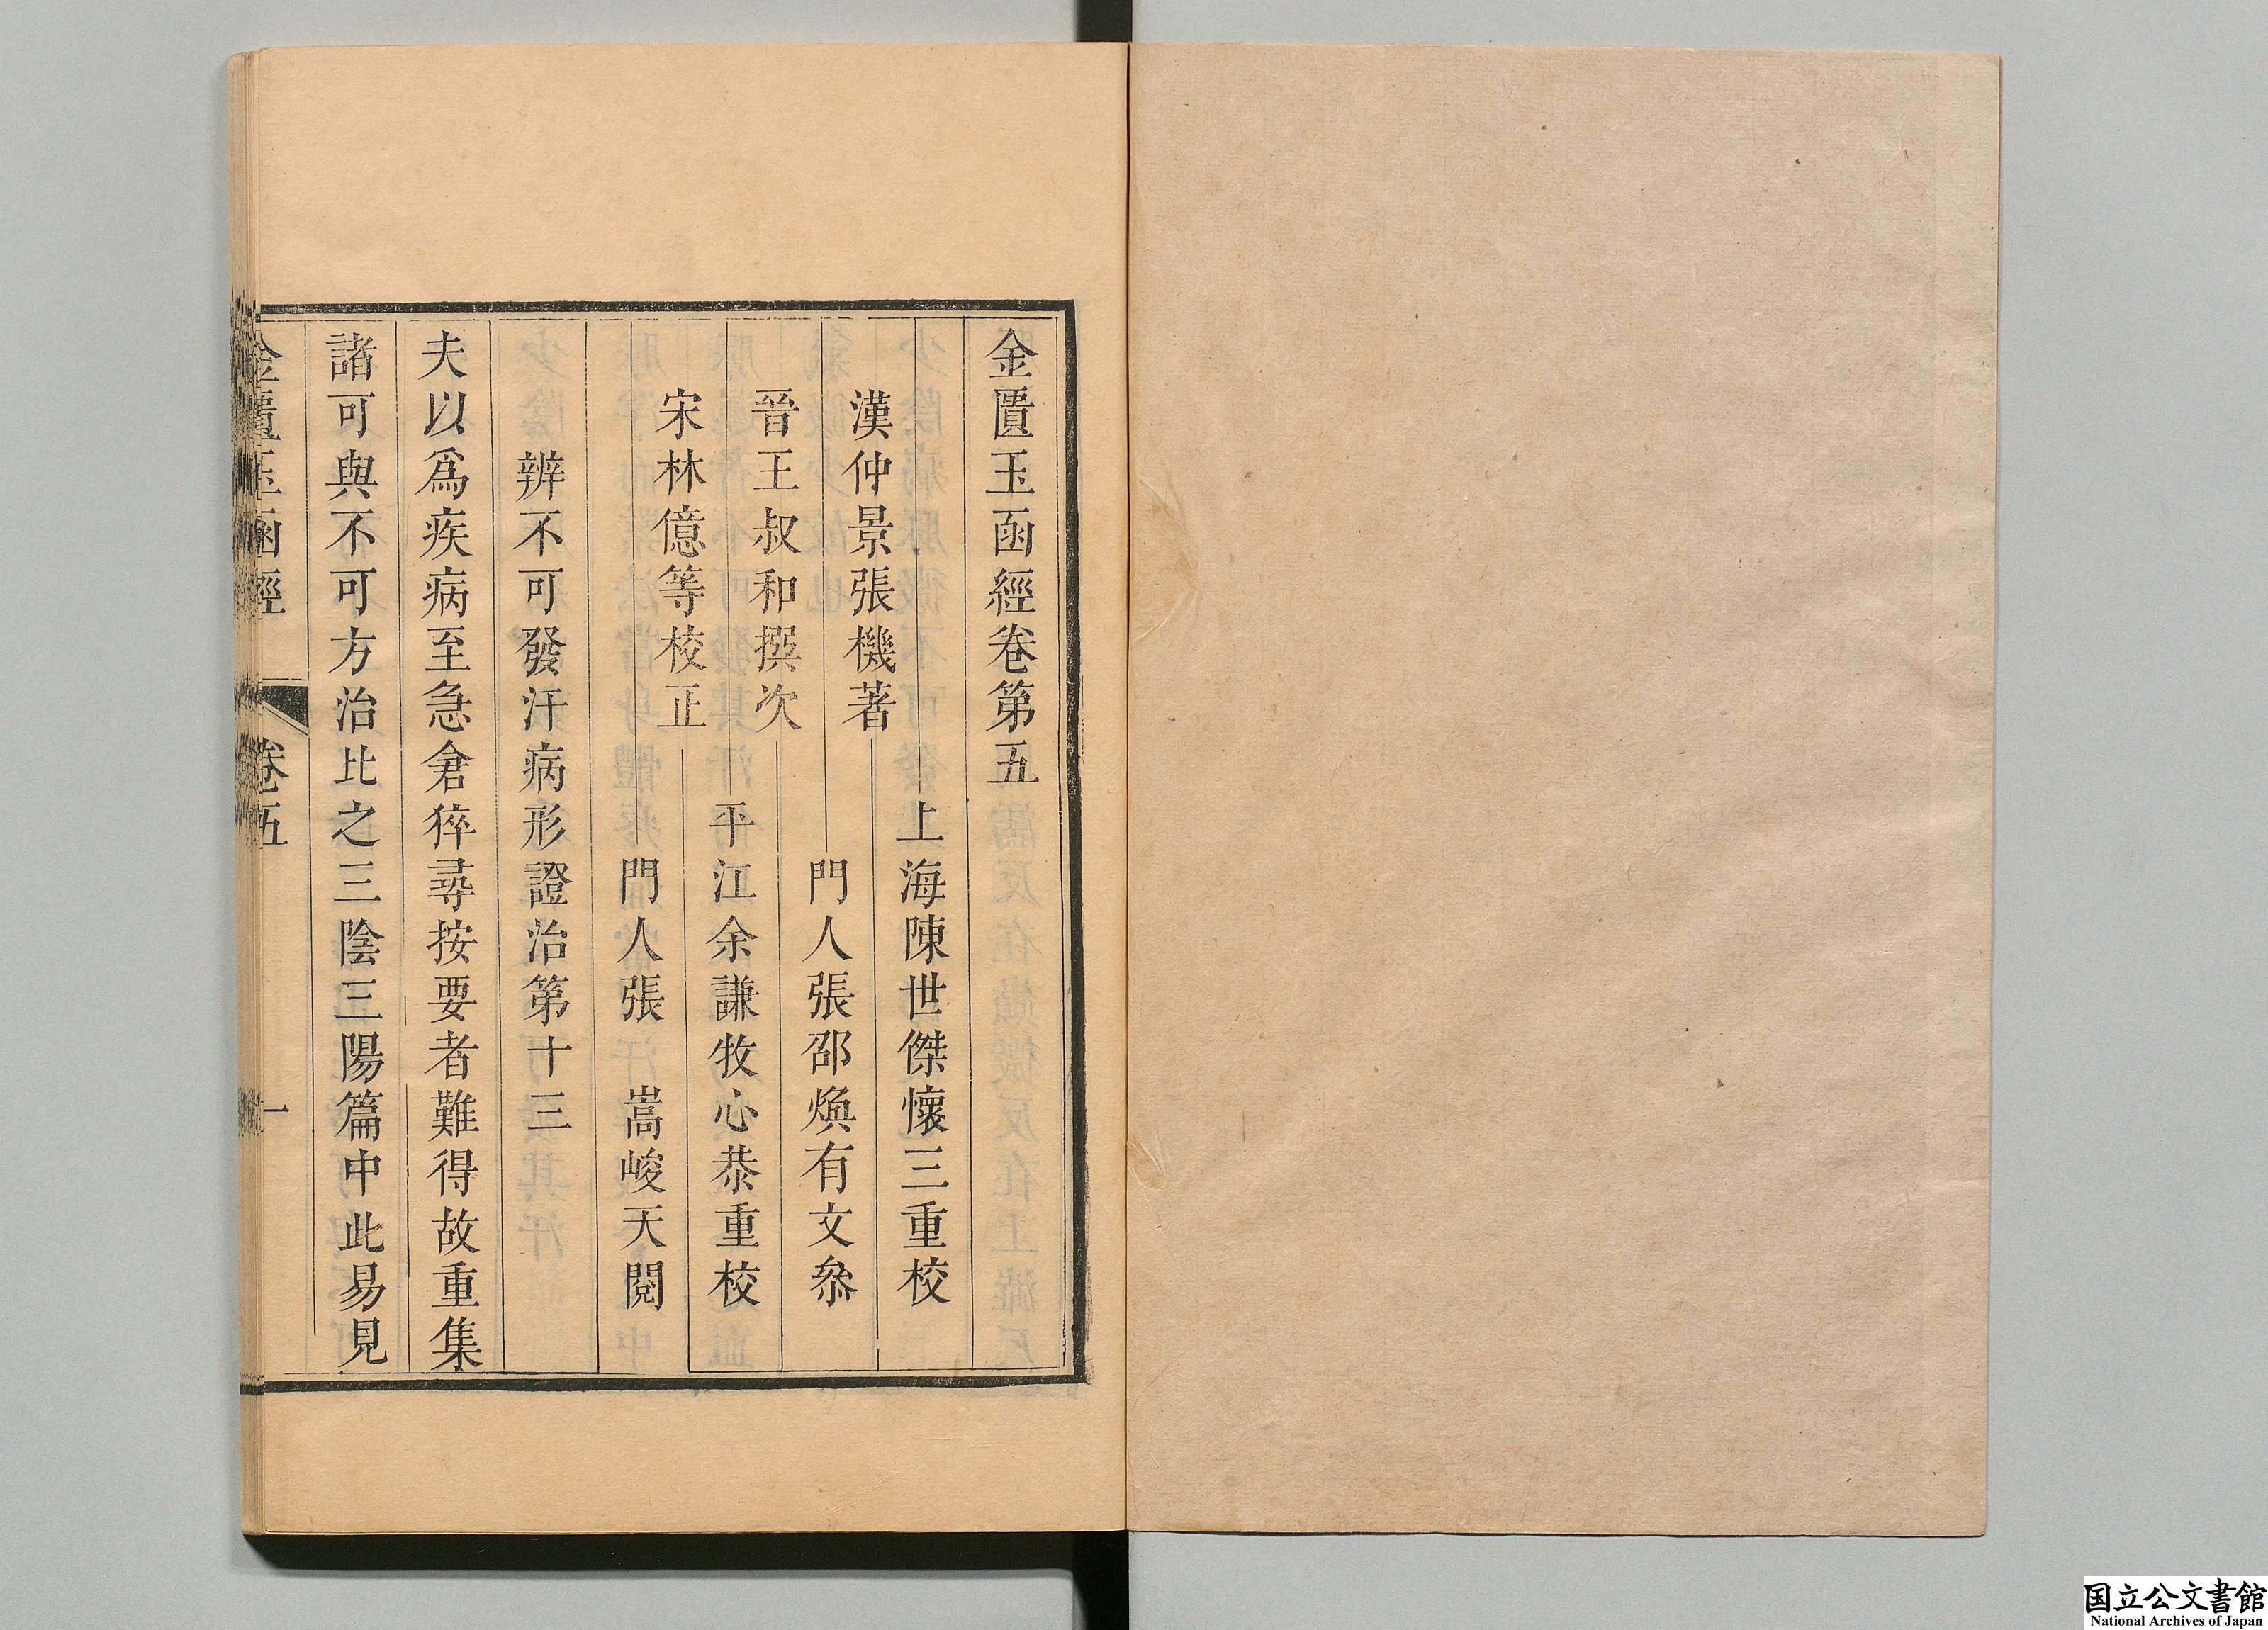 金匱玉函經卷第五
漢仲景張機著
晉王叔和撰次
宋林億等校正
上海陳世傑懷三重校
門人張邵煥有文叅
平江余謙牧心恭重校
門人張 嵩峻天閱
辨不可發汗病形證治第十三
夫以爲疾病至急倉猝尋按要者難得故重集
諸可與不可方治比之三陰三陽篇中此易見
金匱玉函經 卷五 一
国立公文書館
National Archives of Japan